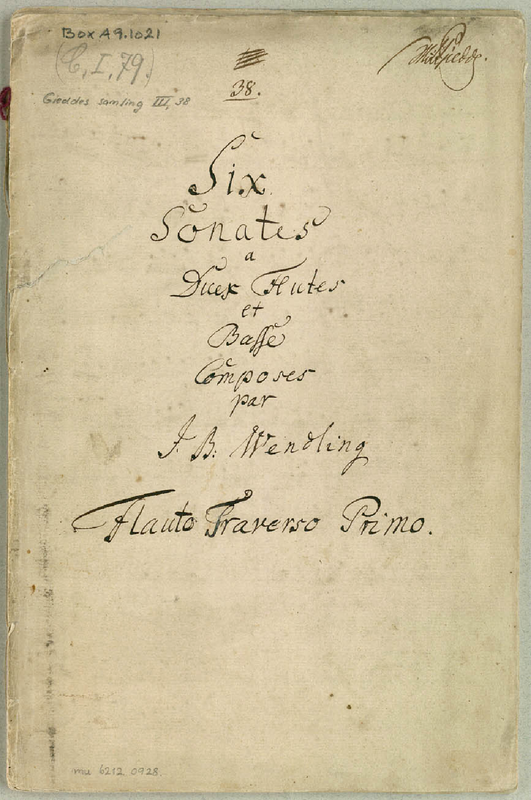 Box A9.1021
(C, I, 79.)
Gieddes samling III, 38
38.
WHRGiedde.
Six
Sonates
a
Duex Flutes
et
Basse
Composes
par
J. B. Wendling
Flauto Traverso Primo.
mu 6212.0928